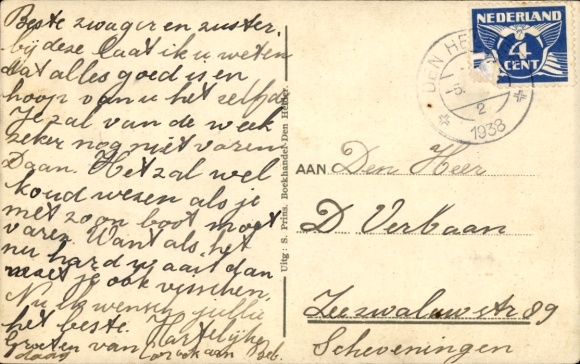 Beste zwager en zuster,
bij deze laat ik u weten
dat alles goed is en
hoop van u het zelfde
Je zal van de week
zeker nog niet varen
Daan. Het zal wel
koud wezen als je
met zoon boot moet
varen. Want als het
nu hard waait dan
moet je ook visschen.
Nu ik wensch jullie
het beste. Hartelijke
Groeten van
daag ook van Beb.
Uitg: S. Prins, Boekhandel-Den Helder.
NEDERLAND
4
CENT
DEN HE
2
1938
AAN Den Heer
D Verbaan
Zeezwaluwstr 89
Scheveningen